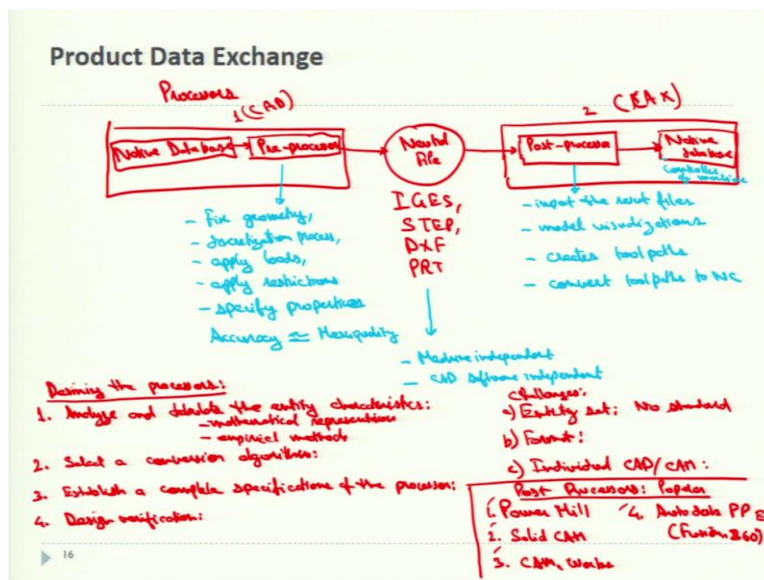 Product Data Exchange
Processors
1 (CAD)
2 (CAX)
Native Database
Pre-processor
Neutral File
Post-processor
Native database
Controller of machine
- Fix geometry,
- discretization process,
- apply loads,
- apply restrictions
- specify properties
Accuracy ≃ Mesh quality
IGES,
STEP,
DXF
PRT
- input the result files
- model visualizations
- creates tool paths
- convert tool paths to NC
- Machine independent
- CAD software independent
Designing the processors:
1. Analyse and tabulate the entity characteristics:
- mathematical representations
- empirical methods
2. Select a conversion algorithm:
3. Establish a complete specifications of the processor:
4. Design verification:
Challenges:
a) Entity set: No standard
b) Format:
c) Individual CAD/CAM:
Post Processors: Popular
1. Power Mill
2. Solid CAM
3. CAM, Works
4. Autodesk PP
(Fusion 360)
16